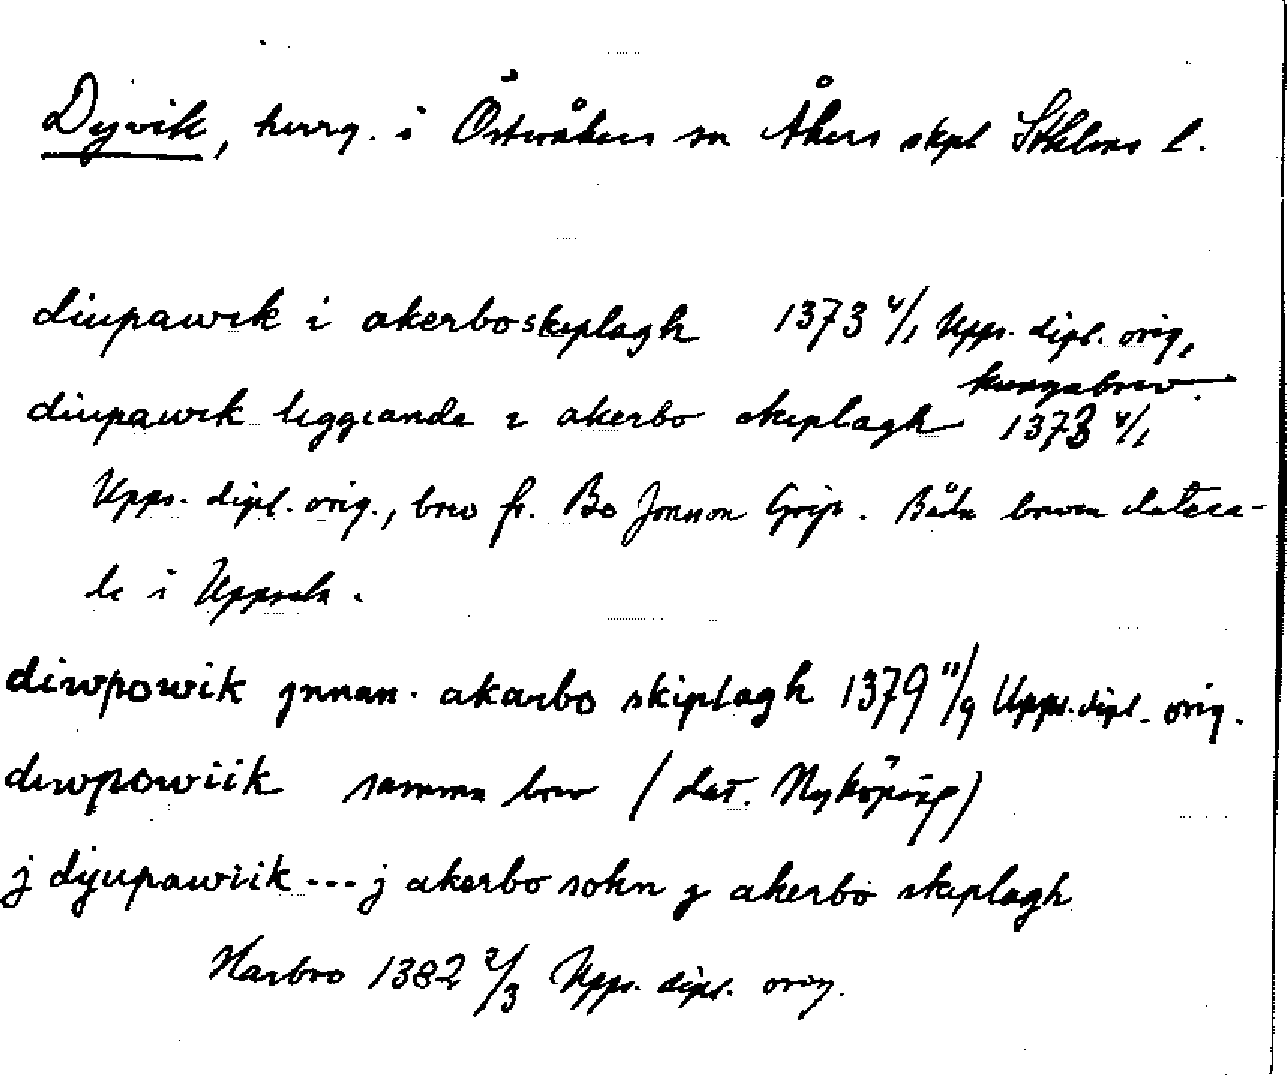 Dyvik, herrg. i Österåkers sn Åkers skpl Sthlms l.
diupawik i akerboskiplagh 1373 4/1 Upps. dipl. orig,
kungabrev.
diupawik liggiande i akerbo skiplagh 1373 4/1
Upps. dipl. orig., brev fr. Bo Jonsson Grip. Båda breven datera-
de i Uppsala.
diwpowik ynnan akarbo skiplagh 1379 11/9 Upps. dipl. orig.
diwpowiik samma brev (dat. Nyköping)
j dyupawiik --- j akerbo sokn y akerbo skiplagh
Harbro 1382 2/3 Upps. dipl. orig.